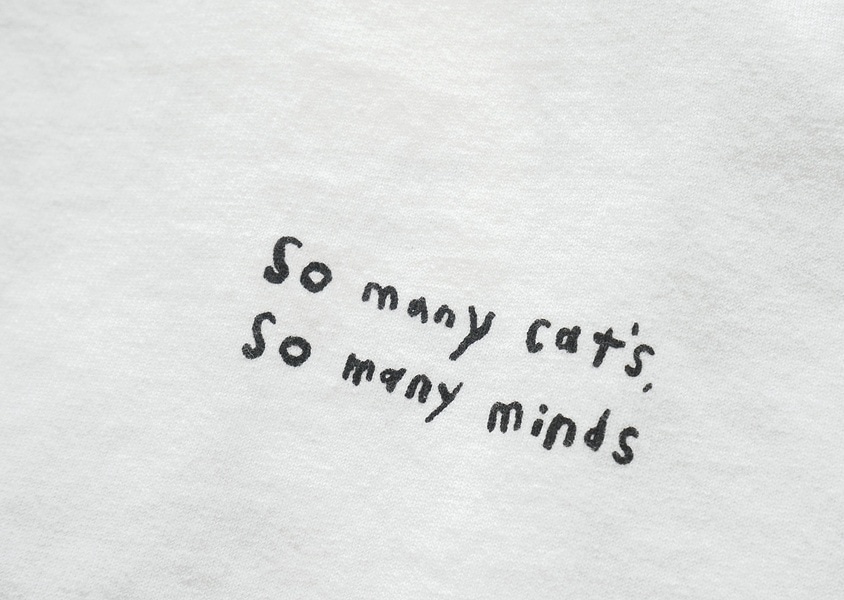 So many cat's,
So many minds